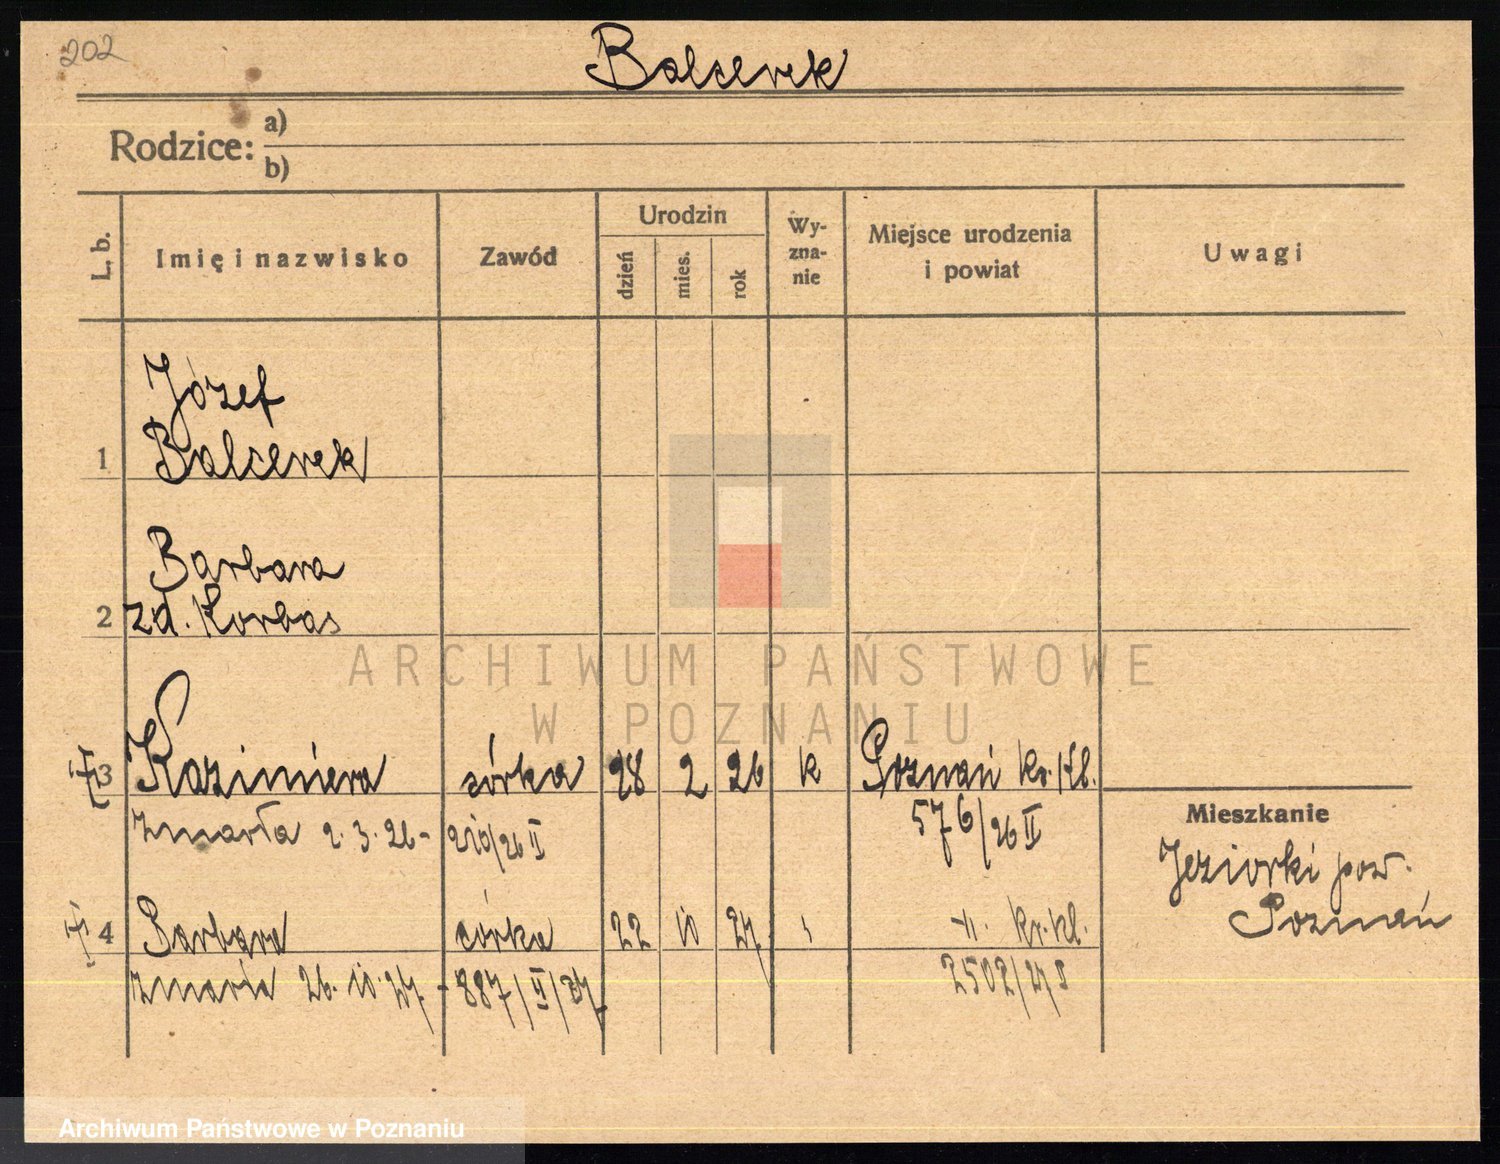 202
Balcerek
Rodzice: a)
b)
L. b.
Imię i nazwisko
Zawód
Urodzin
dzień
mies.
rok
Wy-
zna-
nie
Miejsce urodzenia
i powiat
Uwagi
Józef
1 Balcerek
Barbara
2 zd. Korbas
3 Kazimiera córka 28 2 26 k Poznań kr. kl.
zmarła 2.3.26 - 210/26 II 576/26 II
Mieszkanie
Jeziorki pow.
Poznań
4 Barbara córka 22 10 27 " -"- kr. kl.
zmarła 26.10.27. - 887/II/27 2502/27 I
ARCHIWUM PAŃSTWOWE
W POZNANIU
Archiwum Państwowe w Poznaniu